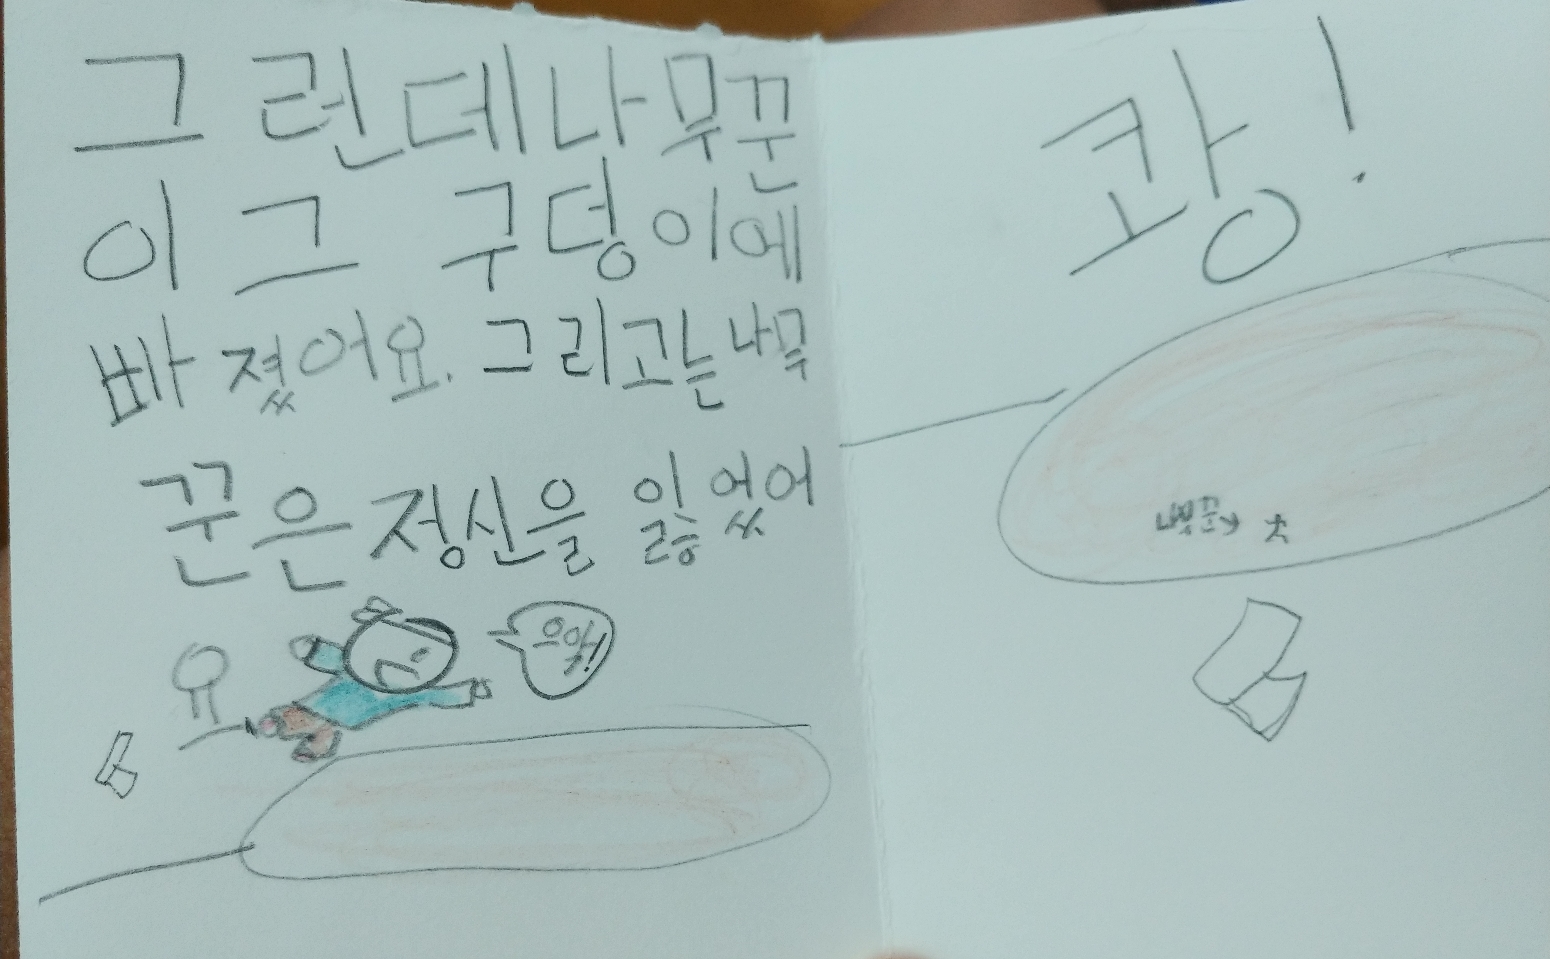 그런데나무꾼
이 그 구덩이에
빠졌어요. 그리고는 나무
꾼은 정신을 잃었어
요
으악!
쾅!